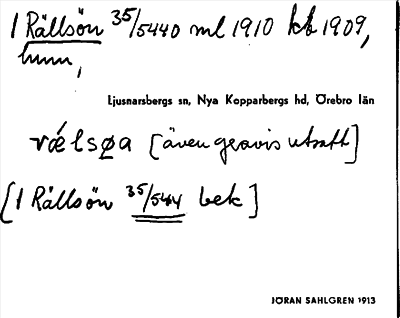 1 Rällsön 35/5440 ml 1910 kb 1909,
hmn,
Ljusnarsbergs sn, Nya Kopparbergs hd, Örebro län
rǽlsøa [även gravis utsatt]
[1 Rällsön 35/544 bek]
JÖRAN SAHLGREN 1913